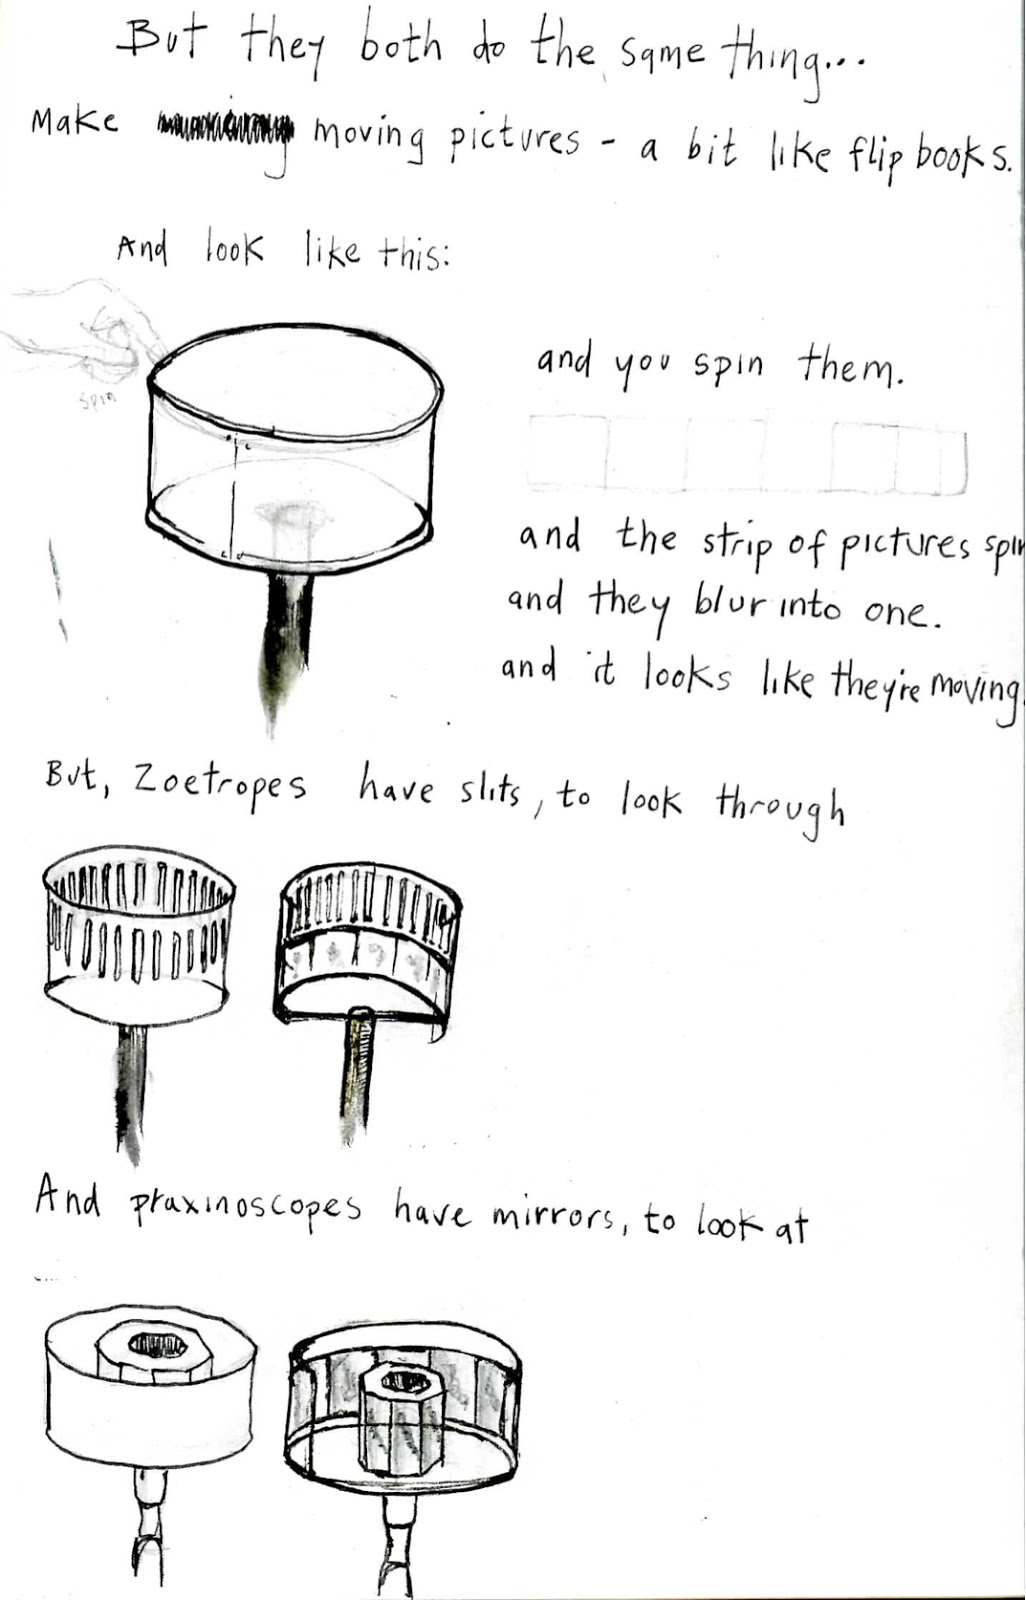 But they both do the same thing...
Make moving pictures - a bit like flip books.
And look like this:
spin
and you spin them.
and the strip of pictures spin
and they blur into one.
and it looks like they're moving.
But, Zoetropes have slits, to look through
And praxinoscopes have mirrors, to look at